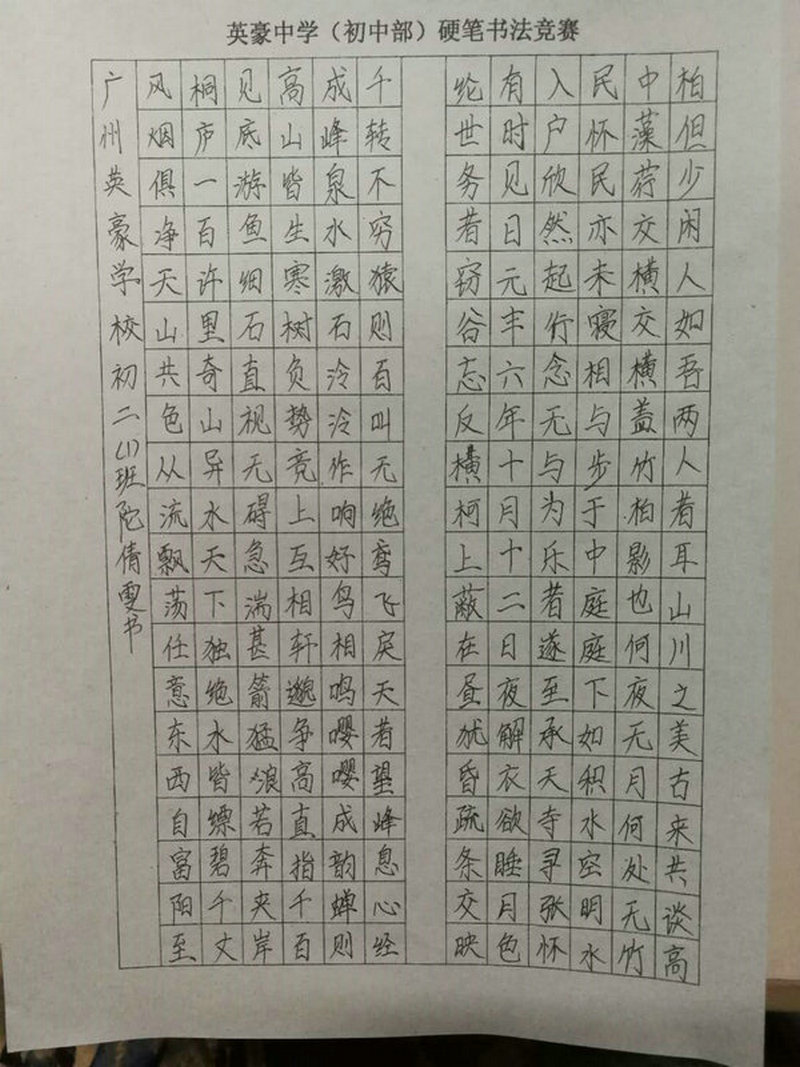 英豪中学（初中部）硬笔书法竞赛
广州英豪学校初二(1)班陀倩雯书
风烟俱净天山共色从流飘荡任意东西自富阳至
桐庐一百许里奇山异水天下独绝水皆缥碧千丈
见底游鱼细石直视无碍急湍甚箭猛浪若奔夹岸
高山皆生寒树负势竞上互相轩邈争高直指千百
成峰泉水激石泠泠作响好鸟相鸣嘤嘤成韵蝉则
千转不穷猿则百叫无绝鸢飞戾天者望峰息心经
纶世务者窃谷忘反横柯上蔽在昼犹昏疏条交映
有时见日元丰六年十月十二日夜解衣欲睡月色
入户欣然起行念无与为乐者遂至承天寺寻张怀
民怀民亦未寝相与步于中庭庭下如积水空明水
中藻荇交横交横盖竹柏影也何夜无月何处无竹
柏但少闲人如吾两人者耳山川之美古来共谈高